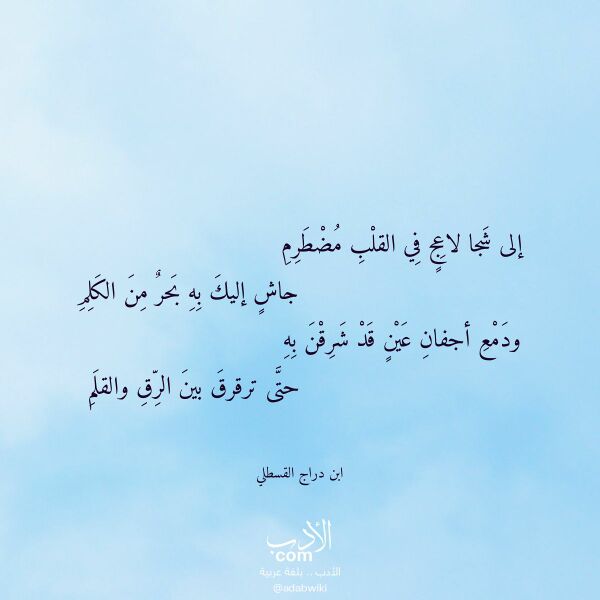 إلى شَجا لاعِجٍ فِي القلْبِ مُضْطَرِمِ
جاشٍ إليكَ بِهِ بَحرٌ مِنَ الكَلِمِ
ودَمْعِ أجفانِ عَيْنٍ قَدْ شَرِقْنَ بِهِ
حتَّى ترقرقَ بينَ الرِّقِ والقلَمِ
ابن دراج القسطلي
الأدب
.com
الأدب .. بلغة عربية
@adabwiki